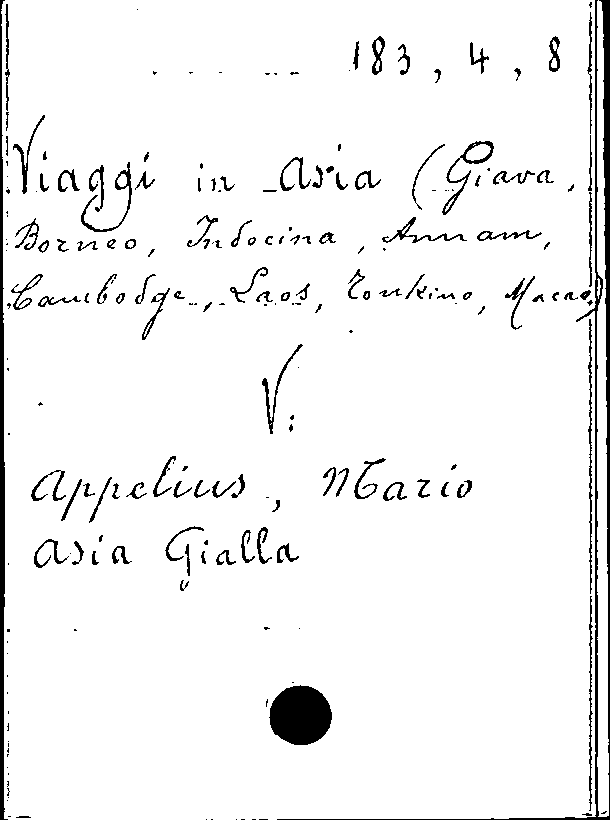 183, 4, 8
Viaggi in Asia (Giava,
Borneo, Indocina, Annam,
Cambodge, Laos, Tonkino, Macao)
V:
Appelius, Mario
Asia Gialla